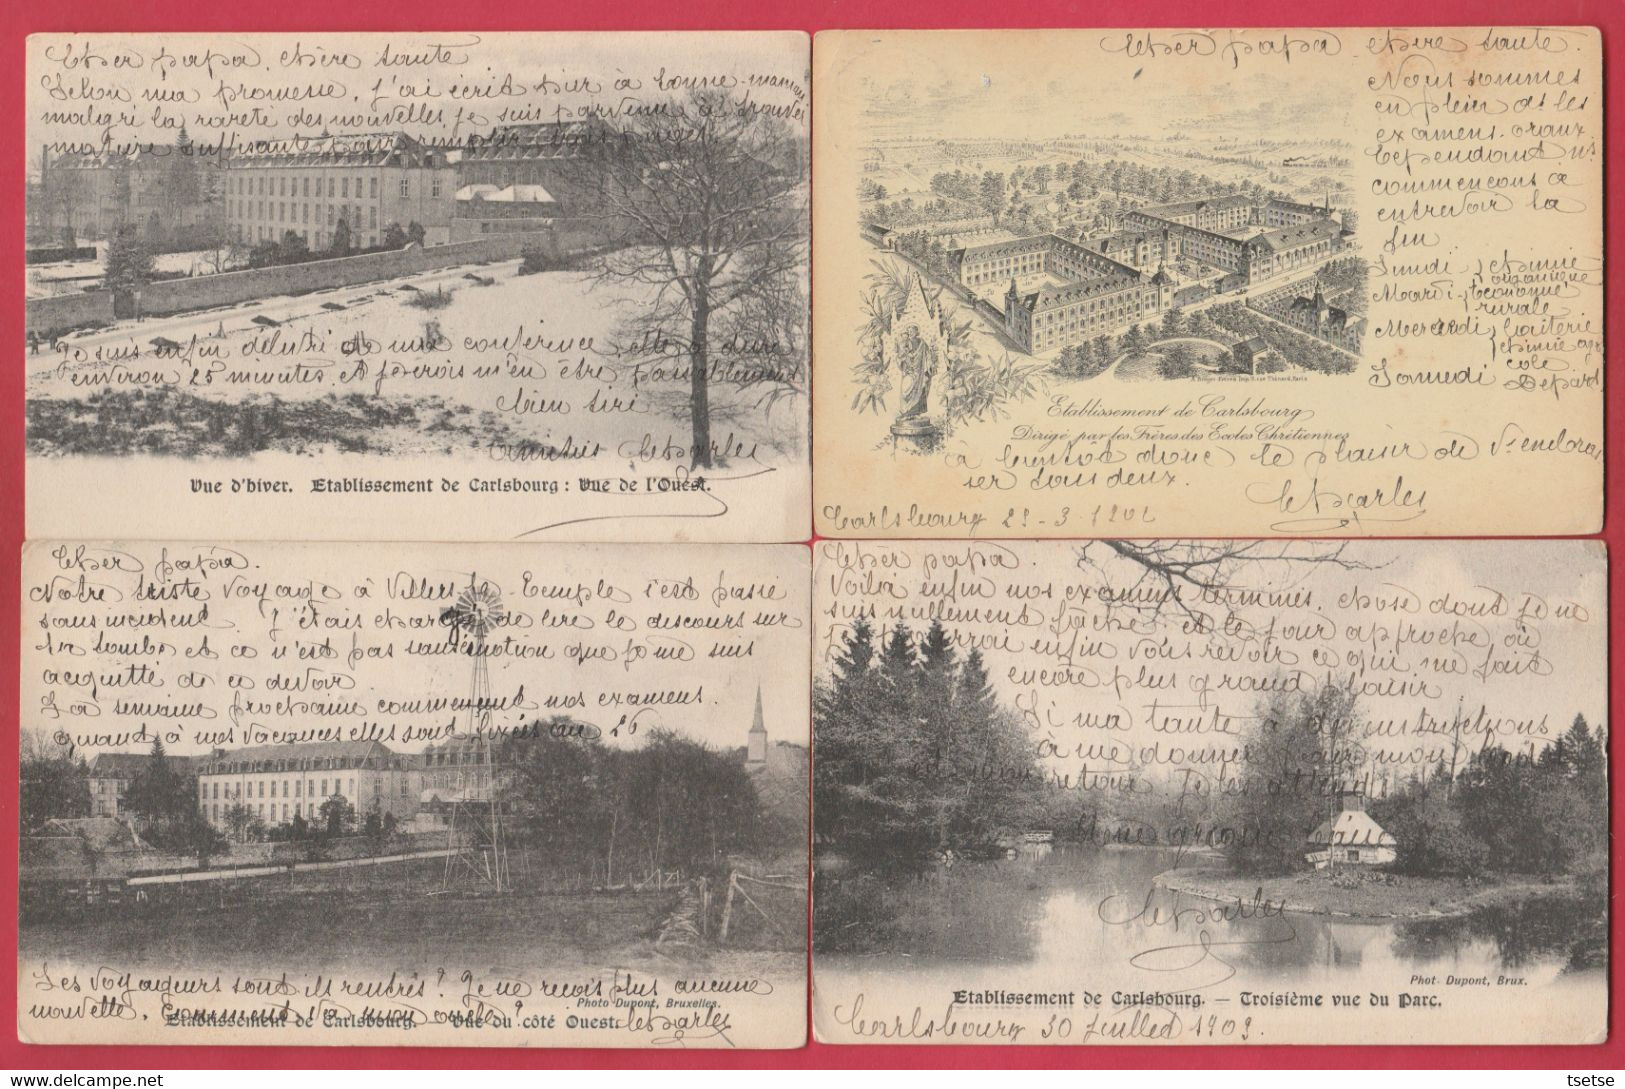 Cher papa, chère tante
Selon ma promesse, j'ai écrit hier à bonne-maman
malgré la rareté des nouvelles je suis parvenu à trouver
matière suffisante pour remplir trois pages.
Je suis enfin délivré de ma conférence, elle a duré
environ 25 minutes et je crois m'en être passablement
bien tiré
Amitiés Charles
Vue d'hiver. Etablissement de Carlsbourg : Vue de l'Ouest.
Cher papa chère tante.
Nous sommes
en plein ds les
examens oraux
Cependant ns
commençons à
entrevoir la
fin
Lundi chimie
organique
Mardi économie
rurale
Mercredi laiterie
chimie agri
cole
Samedi Départ
Etablissement de Carlsbourg
Dirigé par les Frères des Ecoles Chrétiennes
à bientôt donc le plaisir de Vs embras
ser tous deux.
Charles
Carlsbourg 25-3-1902
Cher papa.
Notre triste voyage à Villers-le-Temple s'est passé
sans incident. J'étais chargé de lire le discours sur
la tombe et ce n'est pas sans émotion que je me suis
acquitté de ce devoir
La semaine prochaine commencent nos examens.
quand à nos vacances elles sont fixées au 26
Les voyageurs sont ils rentrés? Je ne reçois plus aucune
Photo Dupont, Bruxelles.
nouvelle. Comment va mon oncle? Charles
Etablissement de Carlsbourg. — Vue du côté Ouest.
Cher papa.
Voilà enfin nos examens terminés, chose dont je ne
suis nullement fâché et le jour approche où
je pourrai enfin vous revoir ce qui me fait
encore plus grand plaisir
Si ma tante a des instructions
à me donner pour mon
retour je les attends
Charles
Phot. Dupont, Brux.
Etablissement de Carlsbourg. — Troisième vue du Parc.
Carlsbourg 30 juillet 1903.
tsetse